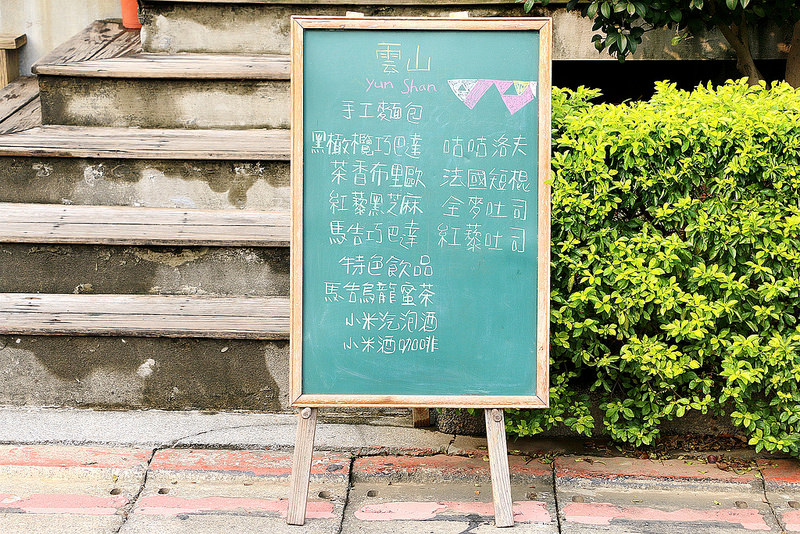 雲山
Yun Shan
手工麵包
黑橄欖巧巴達 咕咕洛夫
茶香布里歐 法國短棍
紅藜黑芝麻 全麥吐司
馬告巧巴達 紅藜吐司
特色飲品
馬告烏龍蜜茶
小米泡泡酒
小米酒咖啡